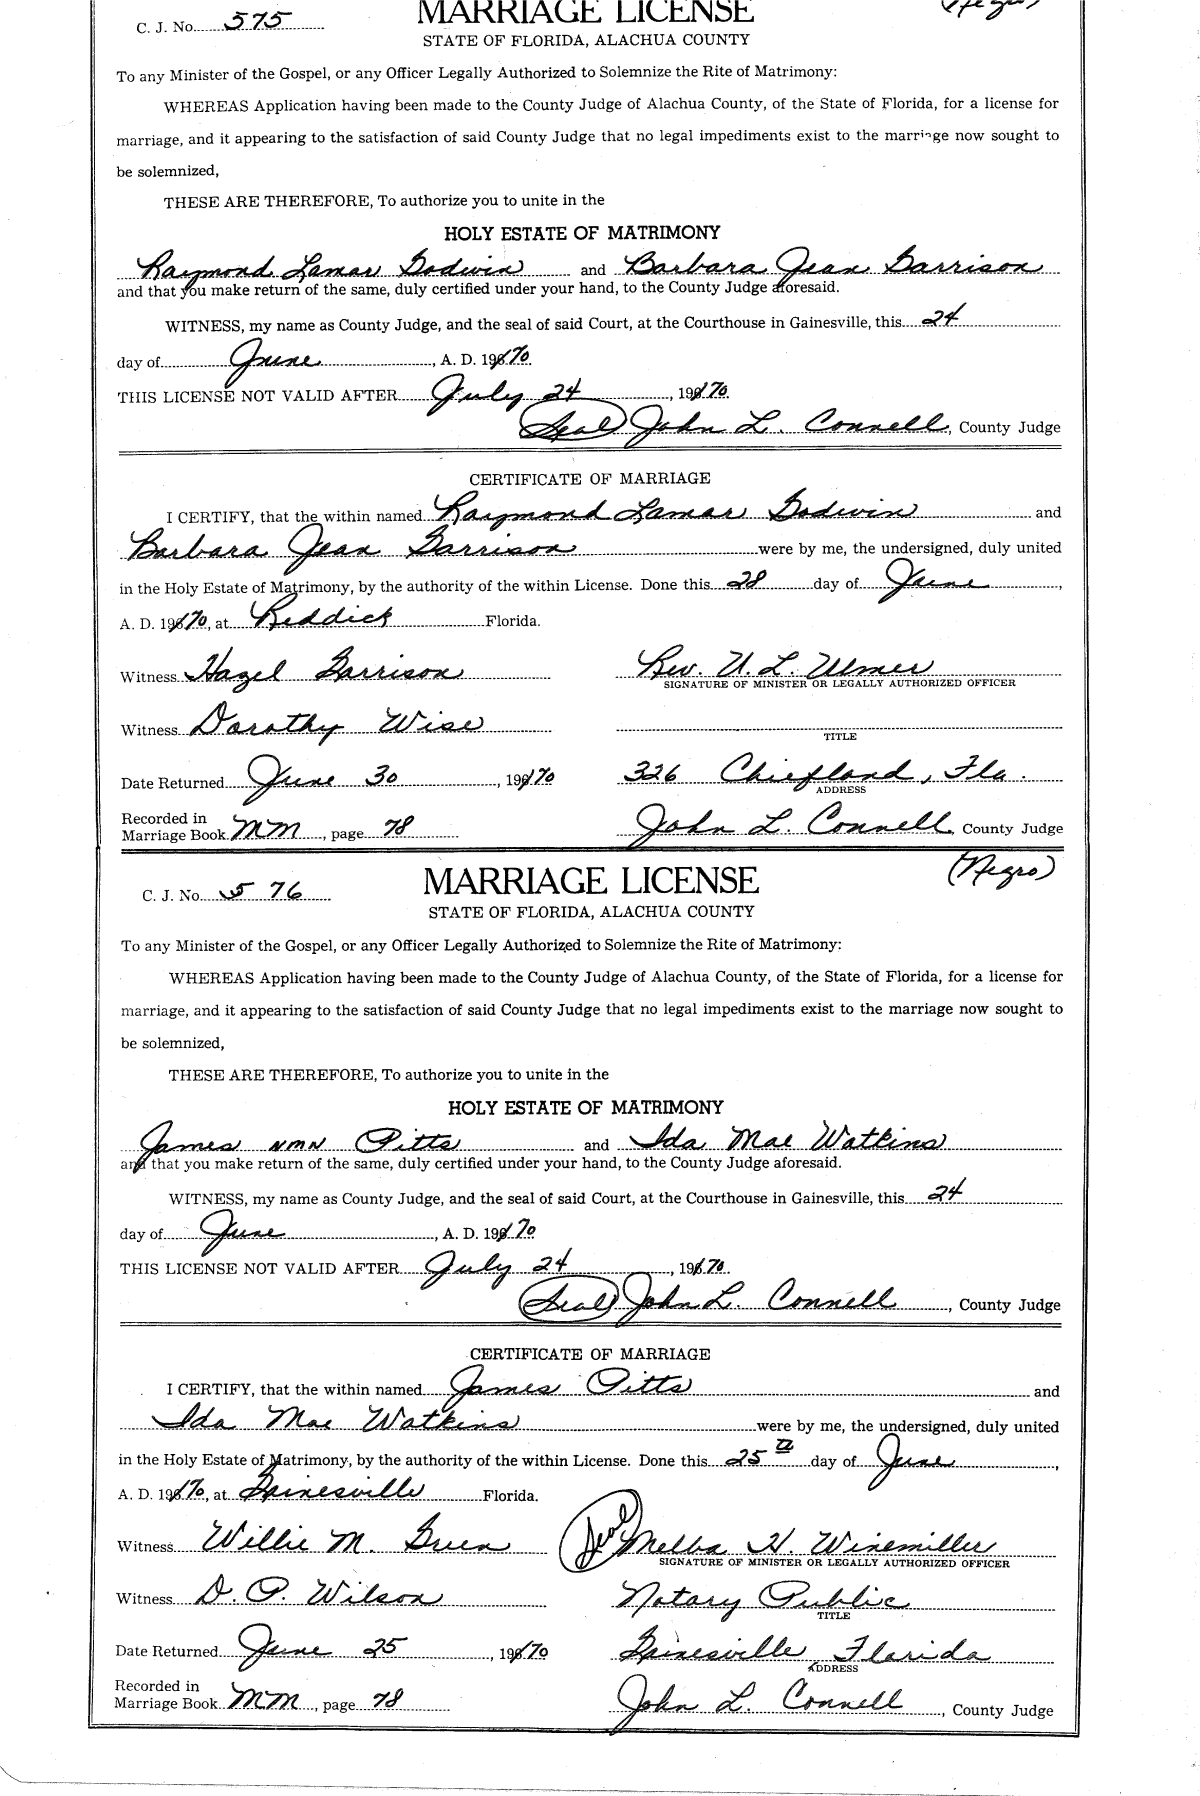 C. J. No. 575 MARRIAGE LICENSE (Negro)
STATE OF FLORIDA, ALACHUA COUNTY
To any Minister of the Gospel, or any Officer Legally Authorized to Solemnize the Rite of Matrimony:
WHEREAS Application having been made to the County Judge of Alachua County, of the State of Florida, for a license for
marriage, and it appearing to the satisfaction of said County Judge that no legal impediments exist to the marriage now sought to
be solemnized,
THESE ARE THEREFORE, To authorize you to unite in the
HOLY ESTATE OF MATRIMONY
Raymond Lamar Godwin and Barbara Jean Garrison
and that you make return of the same, duly certified under your hand, to the County Judge aforesaid.
WITNESS, my name as County Judge, and the seal of said Court, at the Courthouse in Gainesville, this 24
day of June, A. D. 1970.
THIS LICENSE NOT VALID AFTER July 24, 1970.
(Seal) John L. Connell, County Judge
CERTIFICATE OF MARRIAGE
I CERTIFY, that the within named Raymond Lamar Godwin and
Barbara Jean Garrison were by me, the undersigned, duly united
in the Holy Estate of Matrimony, by the authority of the within License. Done this 28 day of June,
A. D. 1970, at Reddick Florida.
Witness Hazel Garrison Rev. U. L. Ulmer
SIGNATURE OF MINISTER OR LEGALLY AUTHORIZED OFFICER
Witness Dorothy Wise
TITLE
Date Returned June 30, 1970 326 Chiefland, Fla.
ADDRESS
Recorded in
Marriage Book MM, page 78 John L. Connell, County Judge
C. J. No. 576 MARRIAGE LICENSE (Negro)
STATE OF FLORIDA, ALACHUA COUNTY
To any Minister of the Gospel, or any Officer Legally Authorized to Solemnize the Rite of Matrimony:
WHEREAS Application having been made to the County Judge of Alachua County, of the State of Florida, for a license for
marriage, and it appearing to the satisfaction of said County Judge that no legal impediments exist to the marriage now sought to
be solemnized,
THESE ARE THEREFORE, To authorize you to unite in the
HOLY ESTATE OF MATRIMONY
James NMN Pitts and Ida Mae Watkins
and that you make return of the same, duly certified under your hand, to the County Judge aforesaid.
WITNESS, my name as County Judge, and the seal of said Court, at the Courthouse in Gainesville, this 24
day of June, A. D. 1970.
THIS LICENSE NOT VALID AFTER July 24, 1970.
(Seal) John L. Connell, County Judge
CERTIFICATE OF MARRIAGE
I CERTIFY, that the within named James Pitts and
Ida Mae Watkins were by me, the undersigned, duly united
in the Holy Estate of Matrimony, by the authority of the within License. Done this 25th day of June,
A. D. 1970, at Gainesville Florida.
Witness Willie M. Green (Seal) Melba H. Winemiller
SIGNATURE OF MINISTER OR LEGALLY AUTHORIZED OFFICER
Witness D. P. Wilson Notary Public
TITLE
Date Returned June 25, 1970 Gainesville Florida
ADDRESS
Recorded in
Marriage Book MM, page 78 John L. Connell, County Judge